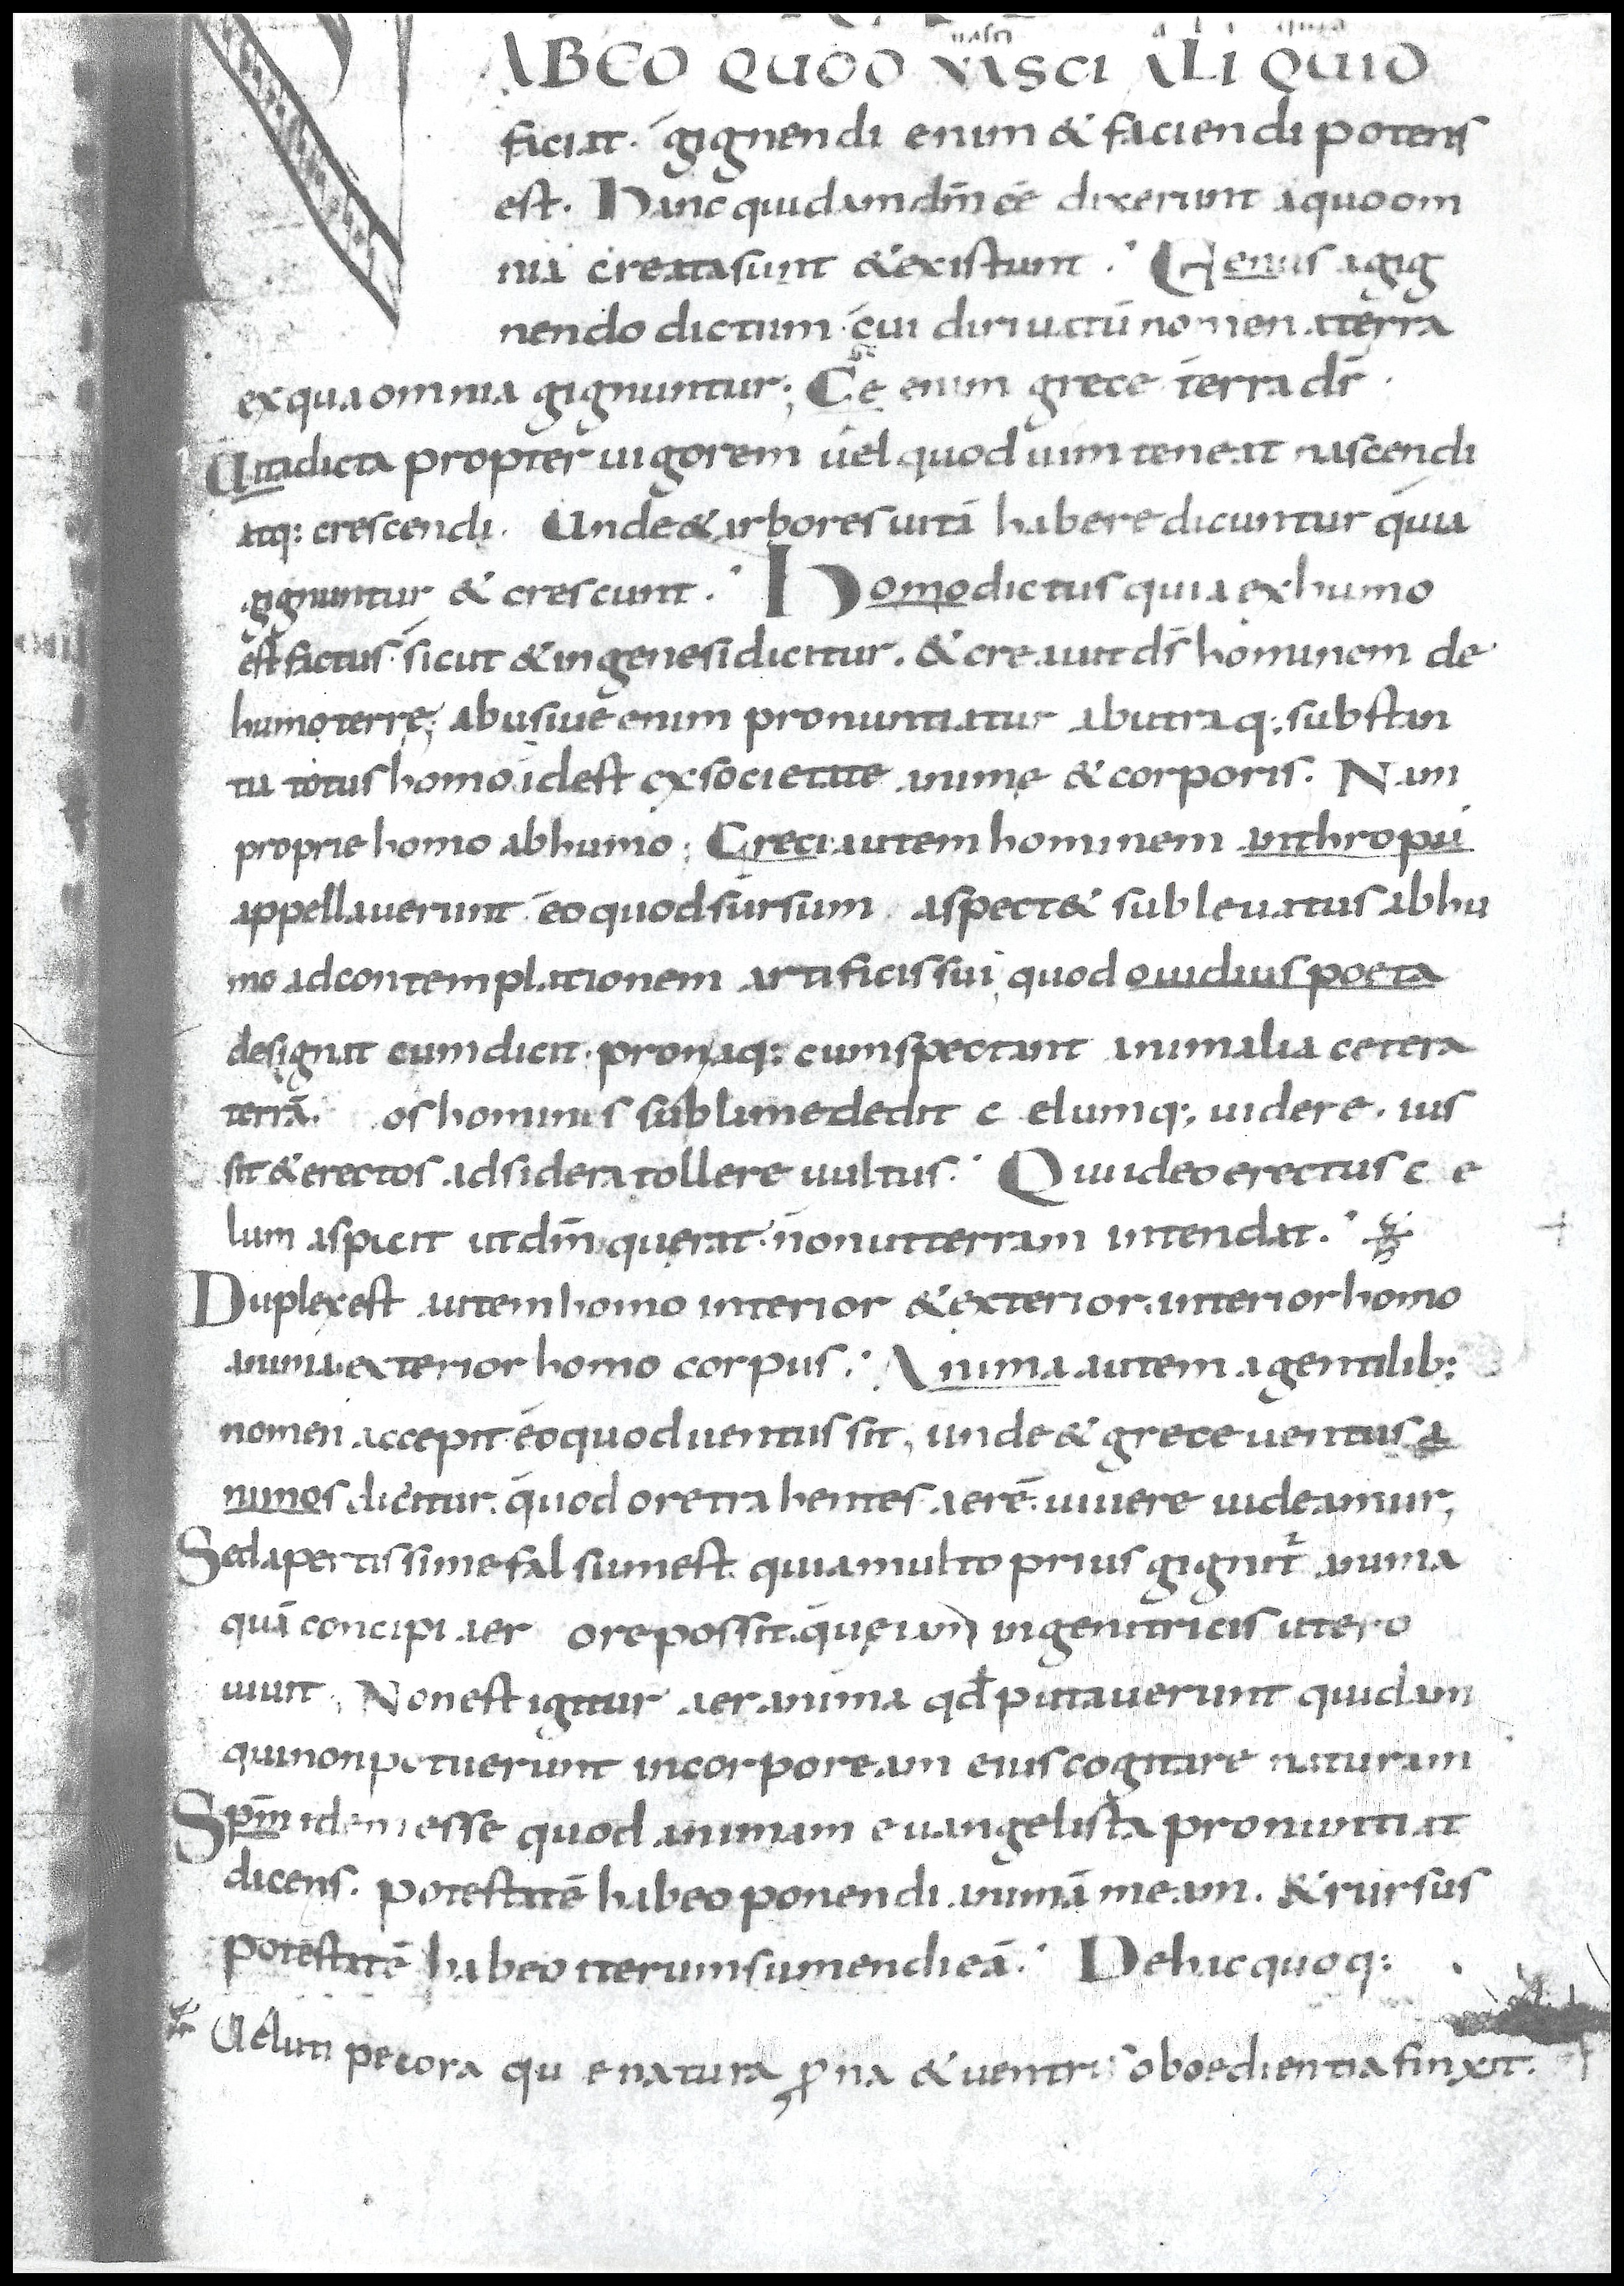 nasci a l i quid
AB EO QUOD NASCI ALIQUID
faciat. gignendi enim & faciendi potens
est. Hanc quidam dm̄ eē dixerunt a quo om
nia creata sunt & existunt. Genus a gig
nendo dictum cui diriuatū nomen a terra
ex qua omnia gignuntur; Ge enim grece terra dr̄.
Uita dicta propter uigorem uel quod uim teneat nascendi
atq: crescendi. Unde & arbores uitā habere dicuntur quia
gignuntur & crescunt. Homo dictus quia ex humo
est factus. sicut & in genesi dicitur. & creauit ds̄ hominem de
humo terrę; abusiue enim pronuntiatur ab utraq; substan
tia totus homo. id est ex societate animę & corporis. Nam
proprie homo ab humo; Greci autem hominem anthropū
appellauerunt eo quod sursum aspect& subleuatus ab hu
mo ad contemplationem artificis sui, quod ouidius poeta
designat cum dicit. pronaq: cum spectant animalia cetera
terrā. os hominis sublime dedit c elumq; uidere. ius
sit & erectos ad sidera tollere uultus. Qui ideo erectus c e
lum aspicit ut dm̄ querat. non ut terram intendat.
Duplex est autem homo interior & exterior. interior homo
anima. exterior homo corpus. Anima autem a gentilib:
nomen accepit eo quod uentus sit, unde & grece uentus a
nimos dicitur. quod ore trahentes aerē. uiuere uideamur,
Sed apertissime falsum est. quia multo prius gignit᷑ anima
quā concipi aer ore possit. quę iam in genitricis utero
uiuit. Non est igitur aer anima qđ putauerunt quidam
qui non potuerunt incorpoream eius cogitare naturam
Spm̄ idem esse quod animam euangelista pronuntiat
dicens. potestatē habeo ponendi animā meam. & rursus
potestatē habeo iterum sumendi eā. De hac quoq:
Ueluti pecora qu e natura ꝓna & uentris oboedientia finxit.